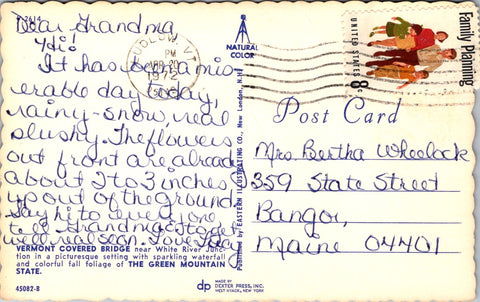 Dear Grandma
Hi!
It has been a mis
erable day today,
rainy-snow, real
slushy. The flowers
out front are already
about 2 to 3 inches
up out of the ground.
Say hi to everyone,
tell Grandma S to get
well real soon. Love
VERMONT COVERED BRIDGE near White River Junc-
tion in a picturesque setting with sparkling waterfall
and colorful fall foliage of THE GREEN MOUNTAIN
STATE.
45082-B
NATURAL
COLOR
LUDLOW, VT
PM
20
1972
Published by EASTERN ILLUSTRATING CO., New London, N.H.
dp
MADE BY
DEXTER PRESS, INC.
WEST NYACK, NEW YORK
Family Planning
UNITED STATES 8c
Post Card
Mrs. Bertha Wheelock
359 State Street
Bangor,
Maine 04401